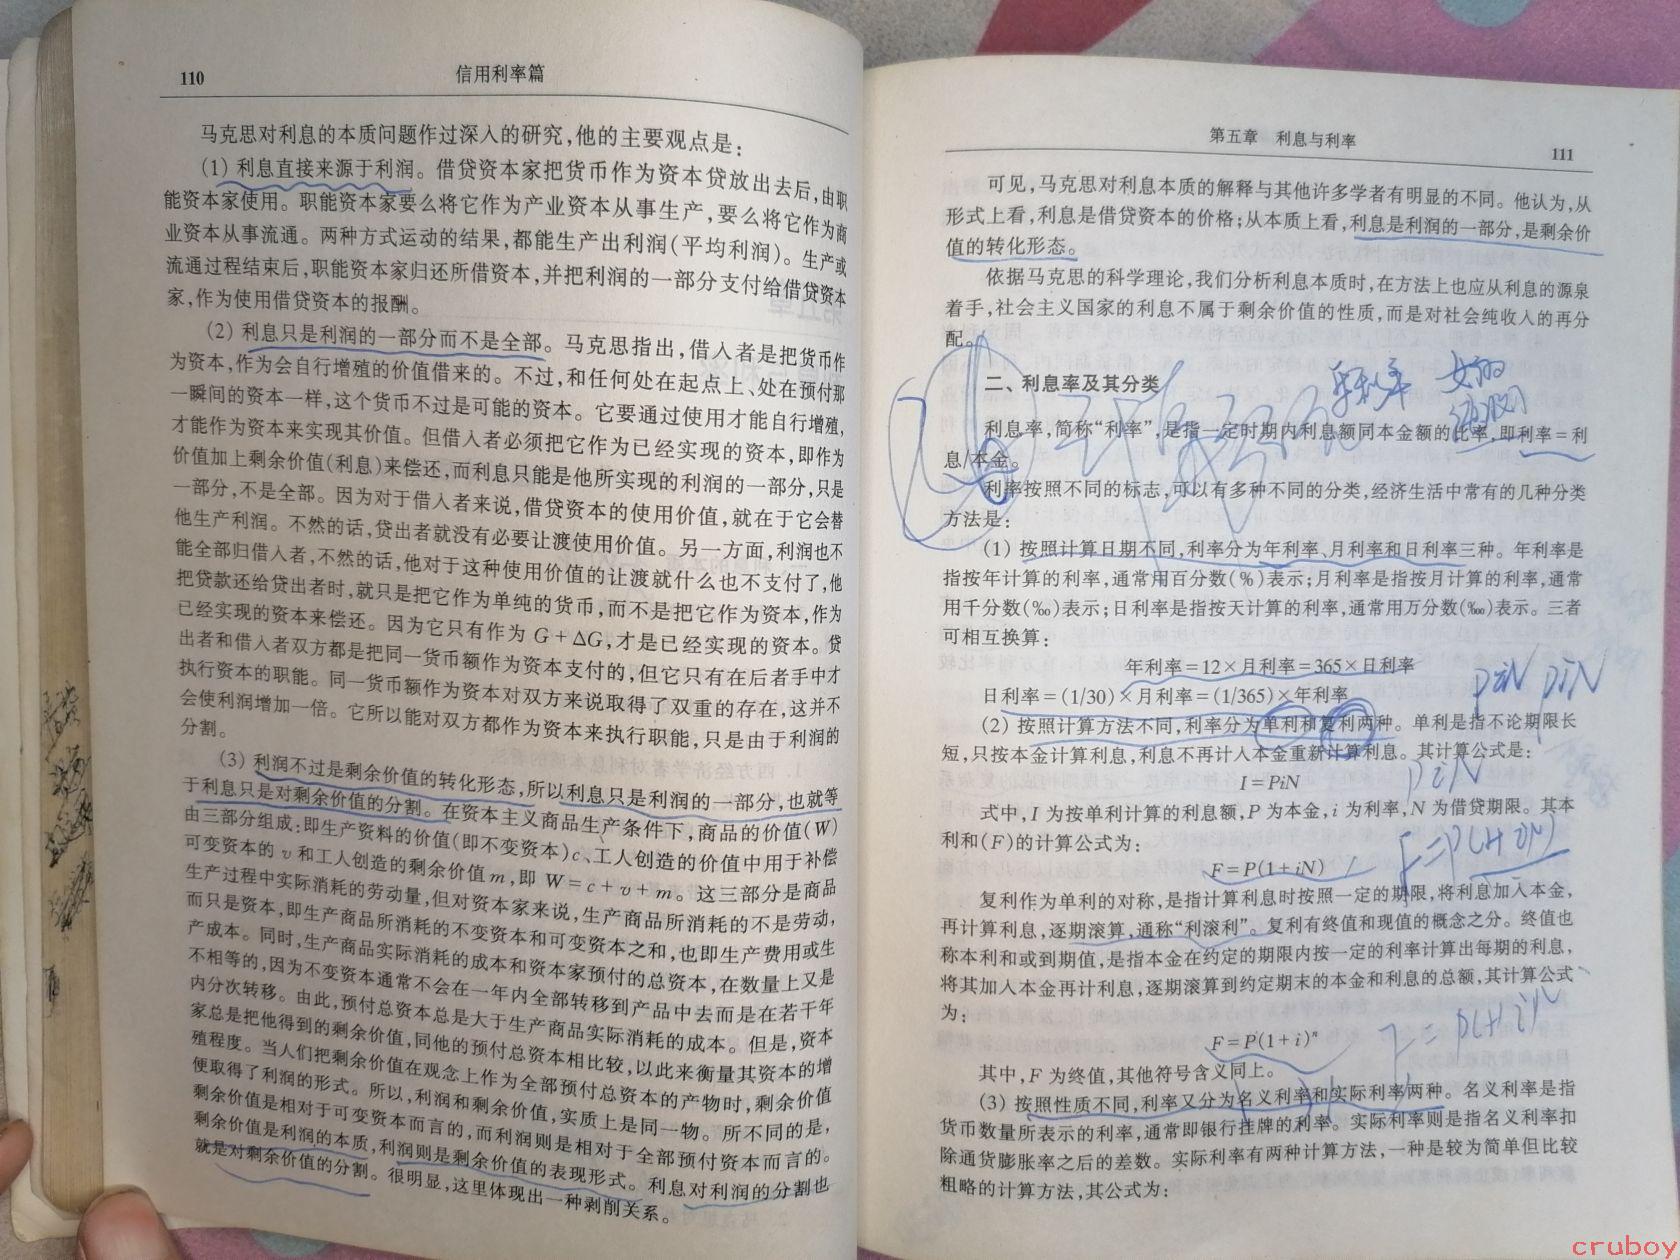 110
信用利率篇
马克思对利息的本质问题作过深入的研究,他的主要观点是:
(1) 利息直接来源于利润。借贷资本家把货币作为资本贷放出去后,由职
能资本家使用。职能资本家要么将它作为产业资本从事生产,要么将它作为商
业资本从事流通。两种方式运动的结果,都能生产出利润(平均利润)。生产或
流通过程结束后,职能资本家归还所借资本,并把利润的一部分支付给借贷资本
家,作为使用借贷资本的报酬。
(2) 利息只是利润的一部分而不是全部。马克思指出,借入者是把货币作
为资本,作为会自行增殖的价值借来的。不过,和任何处在起点上、处在预付那
一瞬间的资本一样,这个货币不过是可能的资本。它要通过使用才能自行增殖,
才能作为资本来实现其价值。但借入者必须把它作为已经实现的资本,即作为
价值加上剩余价值(利息)来偿还,而利息只能是他所实现的利润的一部分,只是
一部分,不是全部。因为对于借入者来说,借贷资本的使用价值,就在于它会替
他生产利润。不然的话,贷出者就没有必要让渡使用价值。另一方面,利润也不
能全部归借入者,不然的话,他对于这种使用价值的让渡就什么也不支付了,他
把贷款还给贷出者时,就只是把它作为单纯的货币,而不是把它作为资本,作为
已经实现的资本来偿还。因为它只有作为 G+ΔG,才是已经实现的资本。贷
出者和借入者双方都是把同一货币额作为资本支付的,但它只有在后者手中才
执行资本的职能。同一货币额作为资本对双方来说取得了双重的存在,这并不
会使利润增加一倍。它所以能对双方都作为资本来执行职能,只是由于利润的
分割。
(3) 利润不过是剩余价值的转化形态,所以利息只是利润的一部分,也就等
于利息只是对剩余价值的分割。在资本主义商品生产条件下,商品的价值(W)
由三部分组成:即生产资料的价值(即不变资本)c、工人创造的价值中用于补偿
可变资本的 v 和工人创造的剩余价值 m,即 W=c+v+m。这三部分是商品
生产过程中实际消耗的劳动量,但对资本家来说,生产商品所消耗的不是劳动,
而只是资本,即生产商品所消耗的不变资本和可变资本之和,也即生产费用或生
产成本。同时,生产商品实际消耗的成本和资本家预付的总资本,在数量上又是
不相等的,因为不变资本通常不会在一年内全部转移到产品中去而是在若干年
内分次转移。由此,预付总资本总是大于生产商品实际消耗的成本。但是,资本
家总是把他得到的剩余价值,同他的预付总资本相比较,以此来衡量其资本的增
殖程度。当人们把剩余价值在观念上作为全部预付总资本的产物时,剩余价值
便取得了利润的形式。所以,利润和剩余价值,实质上是同一物。所不同的是,
剩余价值是相对于可变资本而言的,而利润则是相对于全部预付资本而言的。
剩余价值是利润的本质,利润则是剩余价值的表现形式。利息对利润的分割也
就是对剩余价值的分割。很明显,这里体现出一种剥削关系。
第五章 利息与利率
111
可见,马克思对利息本质的解释与其他许多学者有明显的不同。他认为,从
形式上看,利息是借贷资本的价格;从本质上看,利息是利润的一部分,是剩余价
值的转化形态。
依据马克思的科学理论,我们分析利息本质时,在方法上也应从利息的源泉
着手,社会主义国家的利息不属于剩余价值的性质,而是对社会纯收入的再分
配。
二、利息率及其分类
利息率,简称“利率”,是指一定时期内利息额同本金额的比率,即利率=利
息/本金。
利率按照不同的标志,可以有多种不同的分类,经济生活中常有的几种分类
方法是:
(1) 按照计算日期不同,利率分为年利率、月利率和日利率三种。年利率是
指按年计算的利率,通常用百分数(%)表示;月利率是指按月计算的利率,通常
用千分数(‰)表示;日利率是指按天计算的利率,通常用万分数(‱)表示。三者
可相互换算:
年利率=12×月利率=365×日利率
日利率=(1/30)×月利率=(1/365)×年利率
PiN PiN
(2) 按照计算方法不同,利率分为单利和复利两种。单利是指不论期限长
短,只按本金计算利息,利息不再计入本金重新计算利息。其计算公式是:
I=PiN
PiN
式中,I 为按单利计算的利息额,P 为本金,i 为利率,N 为借贷期限。其本
利和(F)的计算公式为:
F=P(1+iN)
F=P(1+iN)
复利作为单利的对称,是指计算利息时按照一定的期限,将利息加入本金,
再计算利息,逐期滚算,通称“利滚利”。复利有终值和现值的概念之分。终值也
称本利和或到期值,是指本金在约定的期限内按一定的利率计算出每期的利息,
将其加入本金再计利息,逐期滚算到约定期末的本金和利息的总额,其计算公式
为:
F=P(1+i)ⁿ
其中,F 为终值,其他符号含义同上。
(3) 按照性质不同,利率又分为名义利率和实际利率两种。名义利率是指
货币数量所表示的利率,通常即银行挂牌的利率。实际利率则是指名义利率扣
除通货膨胀率之后的差数。实际利率有两种计算方法,一种是较为简单但比较
粗略的计算方法,其公式为:
cruboy